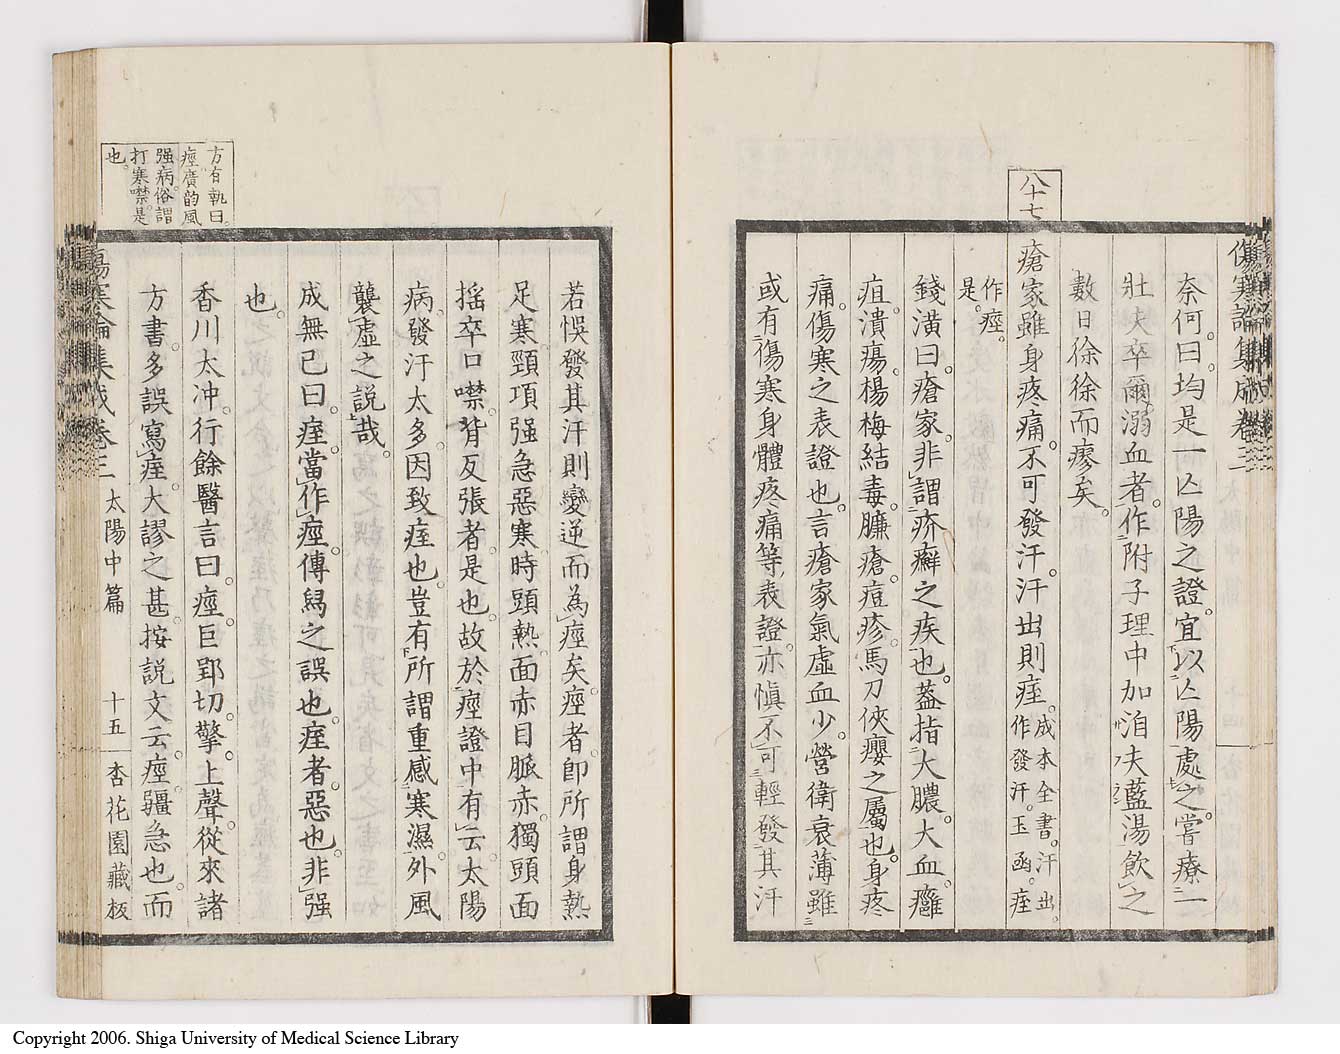 傷寒論集成卷三
奈何。曰。均是一亾陽之證。宜以亾陽處之。嘗療一
壯夫卒爾溺血者。作附子理中加洎夫藍湯飲之
數日徐徐而瘳矣。
八十七
瘡家雖身疼痛。不可發汗。汗出則痓。成本全書。汗出。
作發汗。玉函。痓
作痙。
是。
錢潢曰。瘡家。非謂疥癬之疾也。蓋指大膿大血。癰
疽。潰瘍。楊梅結毒。臁瘡。痘疹。馬刀俠癭之屬也。身疼
痛。傷寒之表證也。言瘡家氣虛血少。營衛衰薄。雖
或有傷寒身體疼痛等表證。亦愼不可輕發其汗
若悞發其汗則變逆而為痙矣。痙者。卽所謂身熱
足寒。頸項强急。惡寒。時頭熱。面赤目脈赤。獨頭面
搖。卒口噤。背反張者。是也。故於痙證中有云。太陽
病。發汗太多。因致痓也。豈有所謂重感寒濕。外風
襲虛之說哉。
成無己曰。痓。當作痙。傳舄之誤也。痓者。惡也。非强
也。
香川太冲。行餘醫言曰。痙。巨郢切。擎。上聲。從來諸
方書。多誤寫痓。大謬之甚。按說文云。痙。彊急也。而
方有執曰。
痙廣韵風
强病。俗謂
打寒噤。是
也。
傷寒論集成卷三 太陽中篇 十五 杏花園藏板
Copyright 2006. Shiga University of Medical Science Library